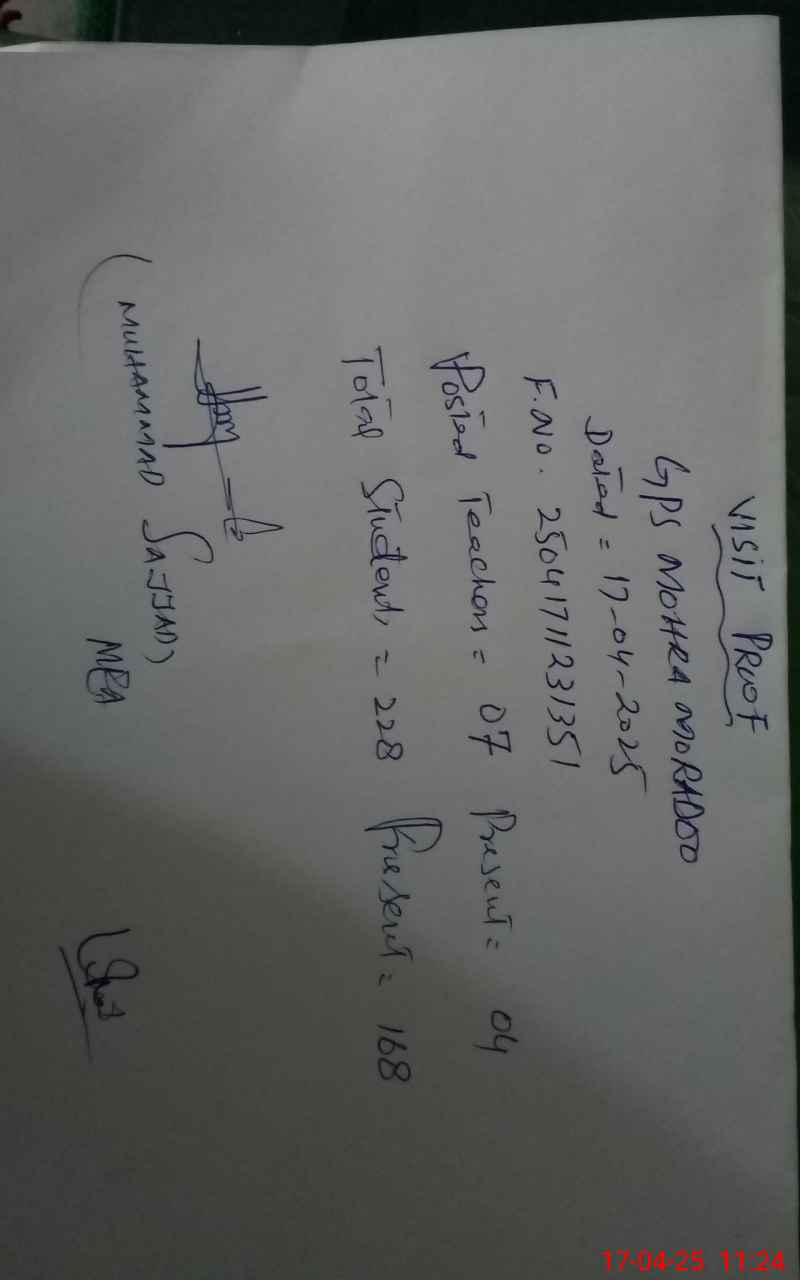 VISIT PROOF
GPS MOHRA MORADOO
Dated = 17-04-2025
F.No. 25041711231351
Posted Teachers = 07 Present = 04
Total Students = 228 Present = 168
(MUHAMMAD SAJJAD)
MEA
17-04-25 11:24